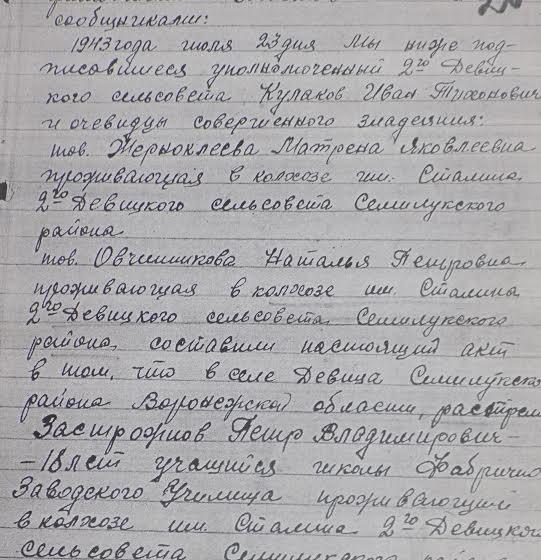 сообщниками:
1943 года июля 23 дня Мы ниже под-
писавшиеся уполномоченный 2го Девиц-
кого сельсовета Кулаков Иван Тихонович
и очевидцы совершенного злодеяния:
тов. Жерноклеева Матрена Яковлевна
проживающая в колхозе им. Сталина
2го Девицкого сельсовета Семилукского
района
тов. Овчинникова Наталья Петровна
проживающая в колхозе им. Сталина
2го Девицкого сельсовета Семилукского
района, составили настоящий акт
в том, что в селе Девица Семилукско
района Воронежской области, растрел
Застрожнов Петр Владимирович-
-18 лет учащийся школы Фабрично
Заводского Училища проживающий
в колхозе им. Сталина 2го Девицког
сельсовета Семилукского